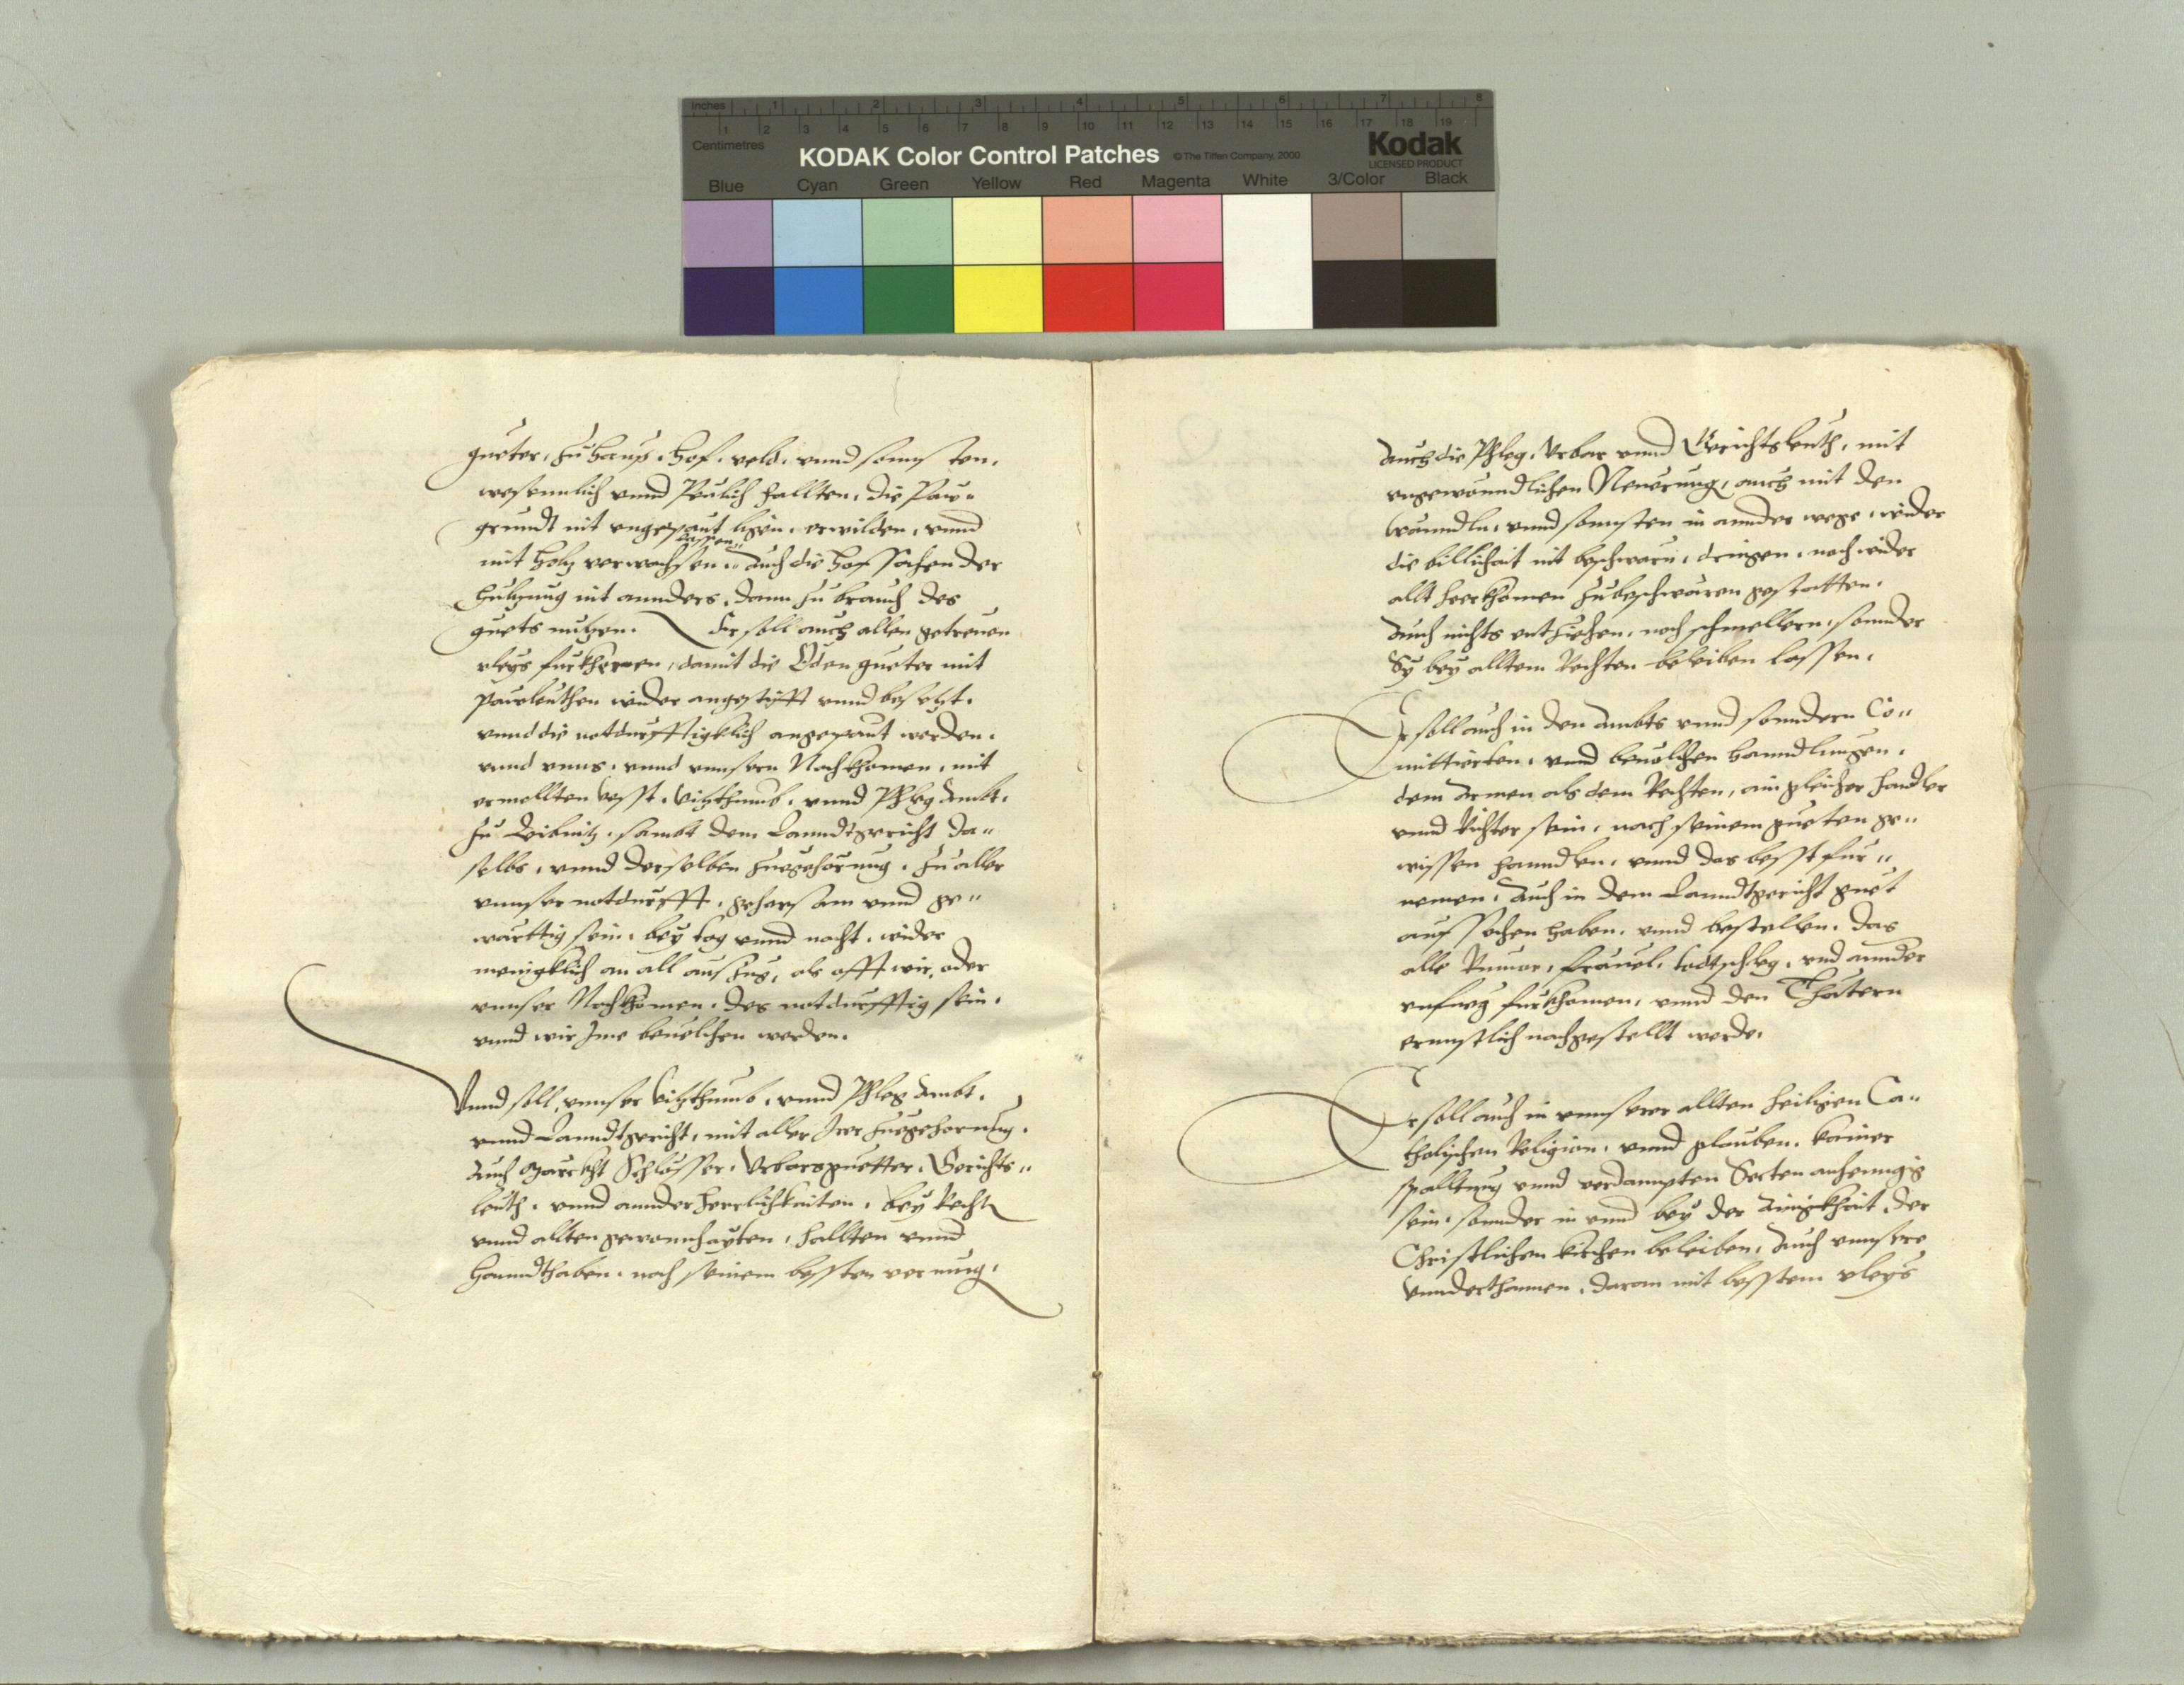 Inches 1 2 3 4 5 6 7 8
1 2 3 4 5 6 7 8 9 10 11 12 13 14 15 16 17 18 19
Centimetres
KODAK Color Control Patches © The Tiffen Company, 2000
Kodak
LICENSED PRODUCT
Blue Cyan Green Yellow Red Magenta White 3/Color Black
gueter, zu hauß, hof, veld, vnnd sonnsten,
wesennlich vnnd Peulich hallten, die Paw-
grundt nit vngepaut ligen, erwilden, vnnd
lassen
mit holtz verwachsen, auch die hofsachen der
hultzung nit annders, dann zu brauch des
guets nutzen. Er soll auch allen getreuen
vleys furkheren, damit die Öden gueter mit
Pauleuthen wider angestifft vnnd besetzt,
vnnd die notdurfftigklich angepaut werden,
vnnd vnns, vnnd vnnsern Nachkhomen, mit
ermellten vitzthumb, vnnd Phleg Ambt,
zu Leibnitz, sambt dem Lanndtgericht da-
selbs, vnnd derselben zuegehörung, zu aller
vnnser notdurfft, gehorsam vnnd ge-
wärttig sein, bey tag vnnd nacht, wider
menigklich an all auszug, als offt wir, oder
vnnser Nachkhomen, des notdurfftig sein,
vnnd wir Ime beuelchen werden.
Vnnd soll vnnser Vitzthumb, vnnd Phleg Ambt,
vnnd Lanndtgericht, mit aller Irer zuegehorung,
Auch Marckht Schlösser, Vrbarsguetter, Gerichts-
leuth, vnnd annder herrlichkaiten, bey Recht
vnnd allten gewonnhayten, hallten vnnd
hanndthaben, nach seinem bessten vermug,
Auch die Phleg, Vrbar vnnd Gerichtsleuth, mit
vngewonndlichen Neuerung, auch mit den
wanndln, vnnd sonnsten in annder wege, wider
die billichait nit beschwärn, dringen, noch wider
allt herkhomen zubeschwären gestatten,
Auch nichts entziehen, noch schmellern, sonnder
Sy bey alltem Rechten beleiben lassen.
Er soll auch in den Ambts vnnd sonndern Co-
mittierten, vnnd beuolchen hanndlungen,
dem Armen als dem Reichen, ain gleicher handler
vnnd Richter sein, nach seinem gueten ge-
wissen hanndlen, vnnd das besst fur-
nemen, Auch in dem Lanndtgericht guet
aufsechen haben, vnnd bestellen, das
alle Rumor, fräuel, todtschleg, vnd annder
vnfueg furkhomen, vnnd den Thätern
ernnstlich nachgestellt werde.
Er soll auch in vnnserer allten heiligen Ca-
tholischen Religion, vnnd glauben, kainer
spalltung vnnd verdampten Secten anhenngig
sein, sonnder in vnnd bey der Ainigkhait der
Christlichen kirchen beleiben, Auch vnnsere
Vnnderthannen, daran mit besstem vleys